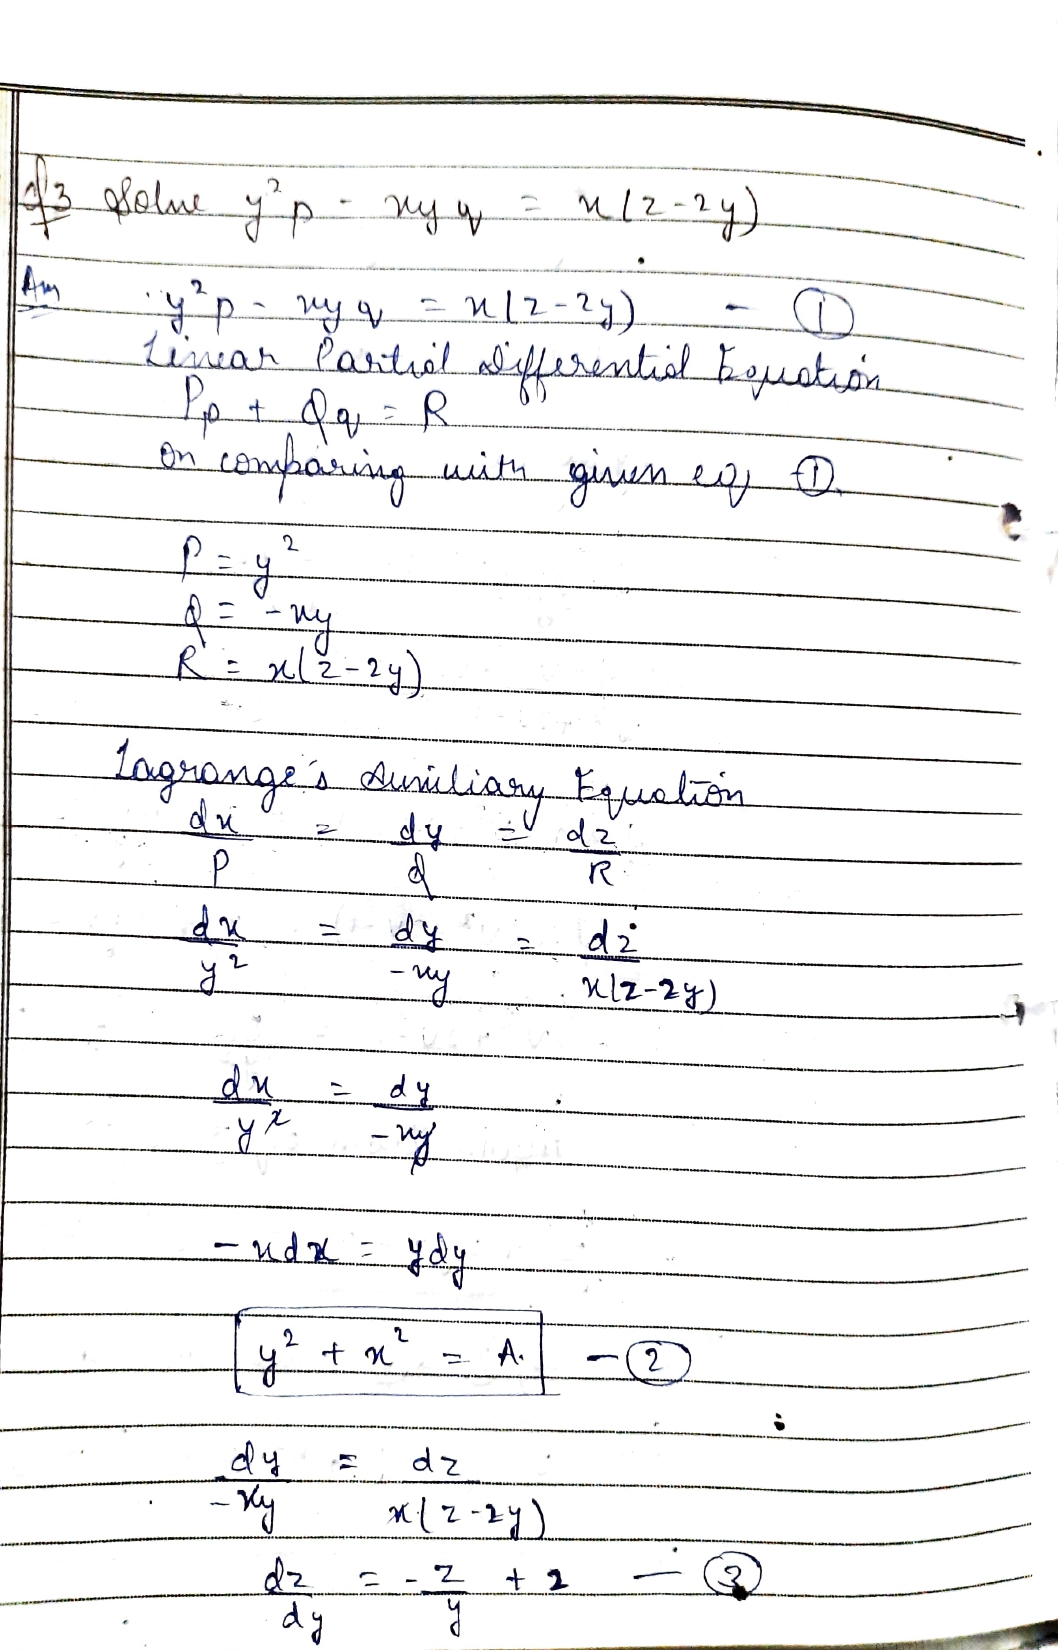 Q3 Solve y²p - xyq = x(z-2y)
Ans y²p - xyq = x(z-2y) - ①
Linear Partial Differential Equation
Pp + Qq = R
on comparing with given eq ①.
P = y²
Q = -xy
R = x(z-2y)
Lagrange's Auxiliary Equation
dx/P = dy/Q = dz/R
dx/y² = dy/-xy = dz/x(z-2y)
dx/y² = dy/-xy
-xdx = ydy
y² + x² = A. - ②
dy/-xy = dz/x(z-2y)
dz/dy = -z/y + 2 - ③